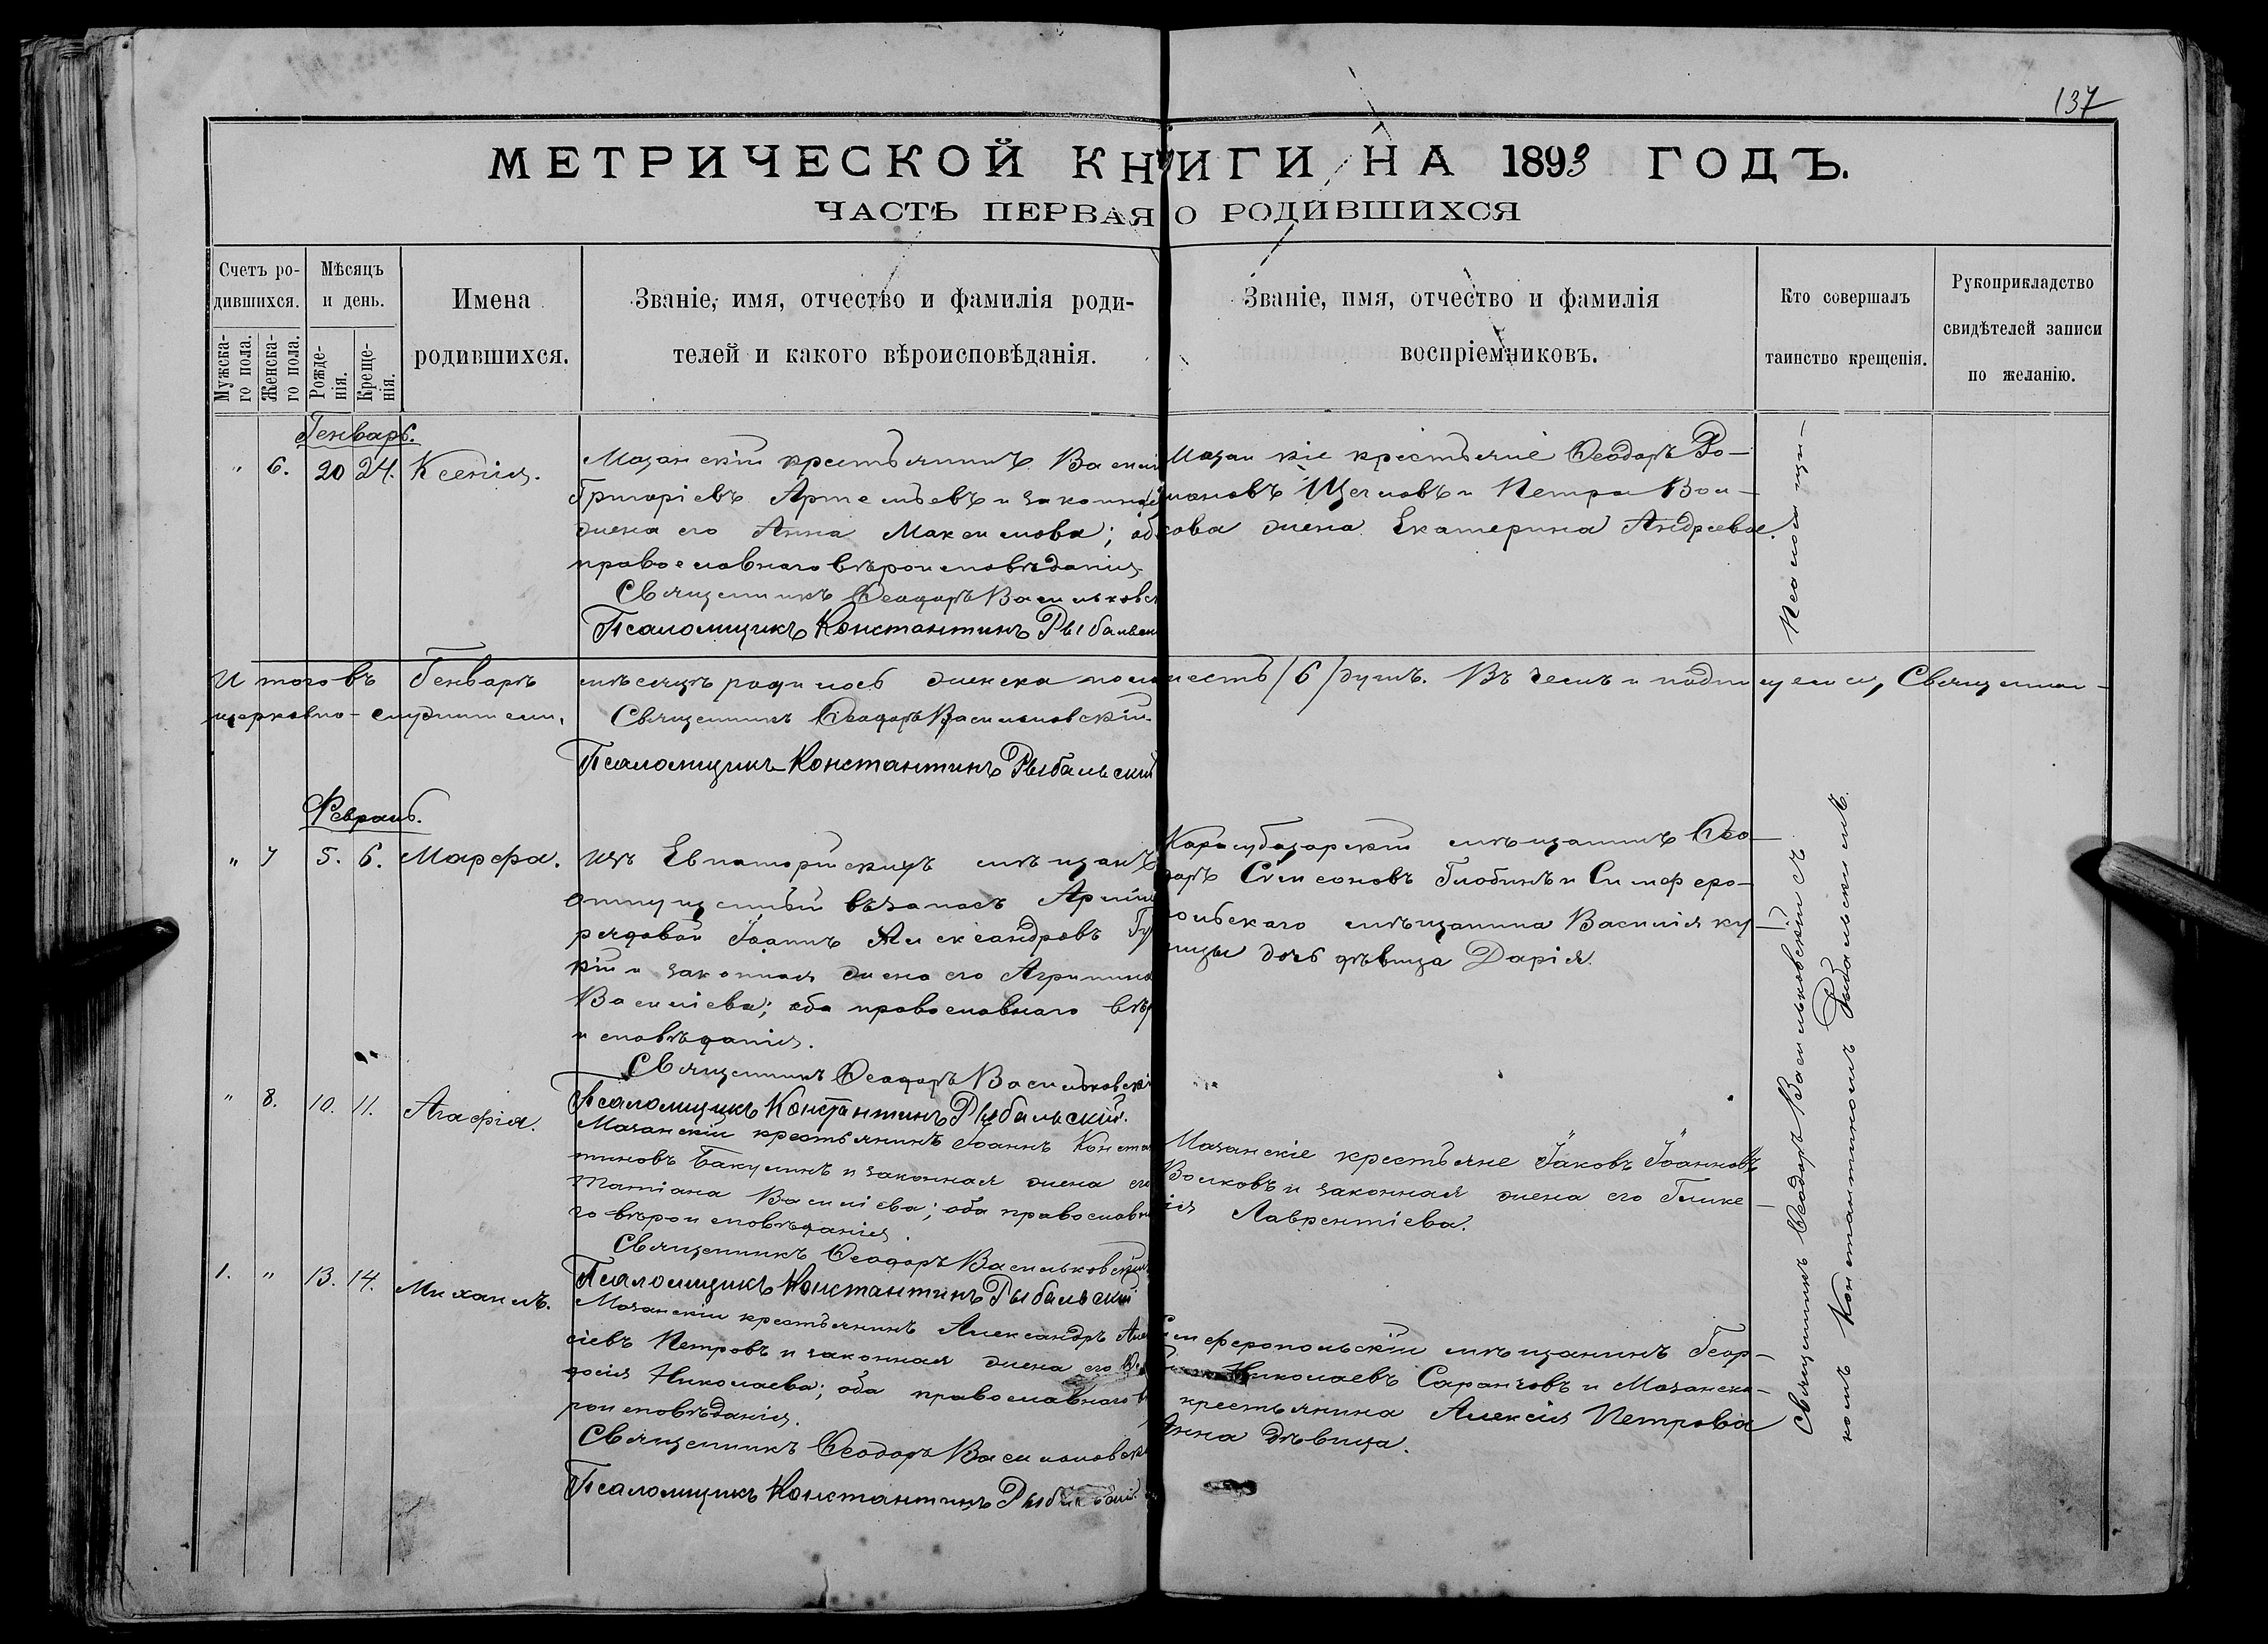 137
МЕТРИЧЕСКОЙ КНИГИ НА 1893 ГОДЪ.
ЧАСТЬ ПЕРВАЯ О РОДИВШИХСЯ
Счетъ ро-
дившихся.
Мужска-
го пола.
Женска-
го пола.
Мѣсяцъ
и день.
Рожде-
нія.
Креще-
нія.
Имена
родившихся.
Званіе, имя, отчество и фамилія роди-
телей и какого вѣроисповѣданія.
Званіе, имя, отчество и фамилія
воспріемниковъ.
Кто совершалъ
таинство крещенія.
Рукоприкладство
свидѣтелей записи
по желанію.
Генварь.
" 6. 20 24. Ксенія.
Мазанскій крестьянинъ Васили
Григоріевъ Артемьевъ и законна
жена его Анна Максимова; об
православнаго вѣроисповѣданія
Священникъ Ѳеодоръ Васильковск
Псаломщикъ Константинъ Рыбальск
Мазанскіе крестьяне Ѳеодоръ Ро-
мановъ Щегловъ и Петра Вол-
кова жена Екатерина Андреева.
Итого въ Генварѣ мѣсяцѣ родилось женска пола шесть (6) душъ. Въ чемъ и подпишемся, Священно-
церковно-служители.
Священникъ Ѳеодоръ Васильковскій
Псаломщикъ Константинъ Рыбальскій
Февраль.
" 7 5. 6. Марфа.
Изъ Евпаторійскихъ мѣщанъ
отпущенный въ запасъ Арміи
рядовой Іоаннъ Александровъ
кій и законная жена его Агрипина
Василіева; оба православнаго вѣр
исповѣданія.
Священникъ Ѳеодоръ Васильковскі
Псаломщикъ Константинъ Рыбальскій.
Карасубазарскій мѣщанинъ Ѳео-
доръ Симеоновъ Глобинъ и Симферо-
ольскаго мѣщанина Василія Ку-
ницы дочь дѣвица Дарія.
" 8. 10. 11. Агафія.
Мазанскій крестьянинъ Іоаннъ Конста
тиновъ Бакулинъ и законная жена его
Татіана Василіева; оба православна
го вѣроисповѣданія
Священникъ Ѳеодоръ Васильковскій
Псаломщикъ Константинъ Рыбальскій
Мазанскіе крестьяне Іаковъ Іоанновъ
Волковъ и законная жена его Глике-
ія Лаврентіева.
1. " 13. 14. Михаилъ.
Мазанскій крестьянинъ Александръ Але
сіевъ Петровъ и законная жена его Ѳе
досія Николаева; оба православнаго в
роисповѣданія.
Священникъ Ѳеодоръ Васильковск
Псаломщикъ Константинъ Рыбальскій
Симферопольскій мѣщанинъ Геор-
Николаевъ Саранчовъ и Мазанска-
крестьянина Алексія Петрова
Анна дѣвица.
Священникъ Ѳеодоръ Васильковскій съ Псаломщи-
комъ Константиномъ Рыбальскимъ.